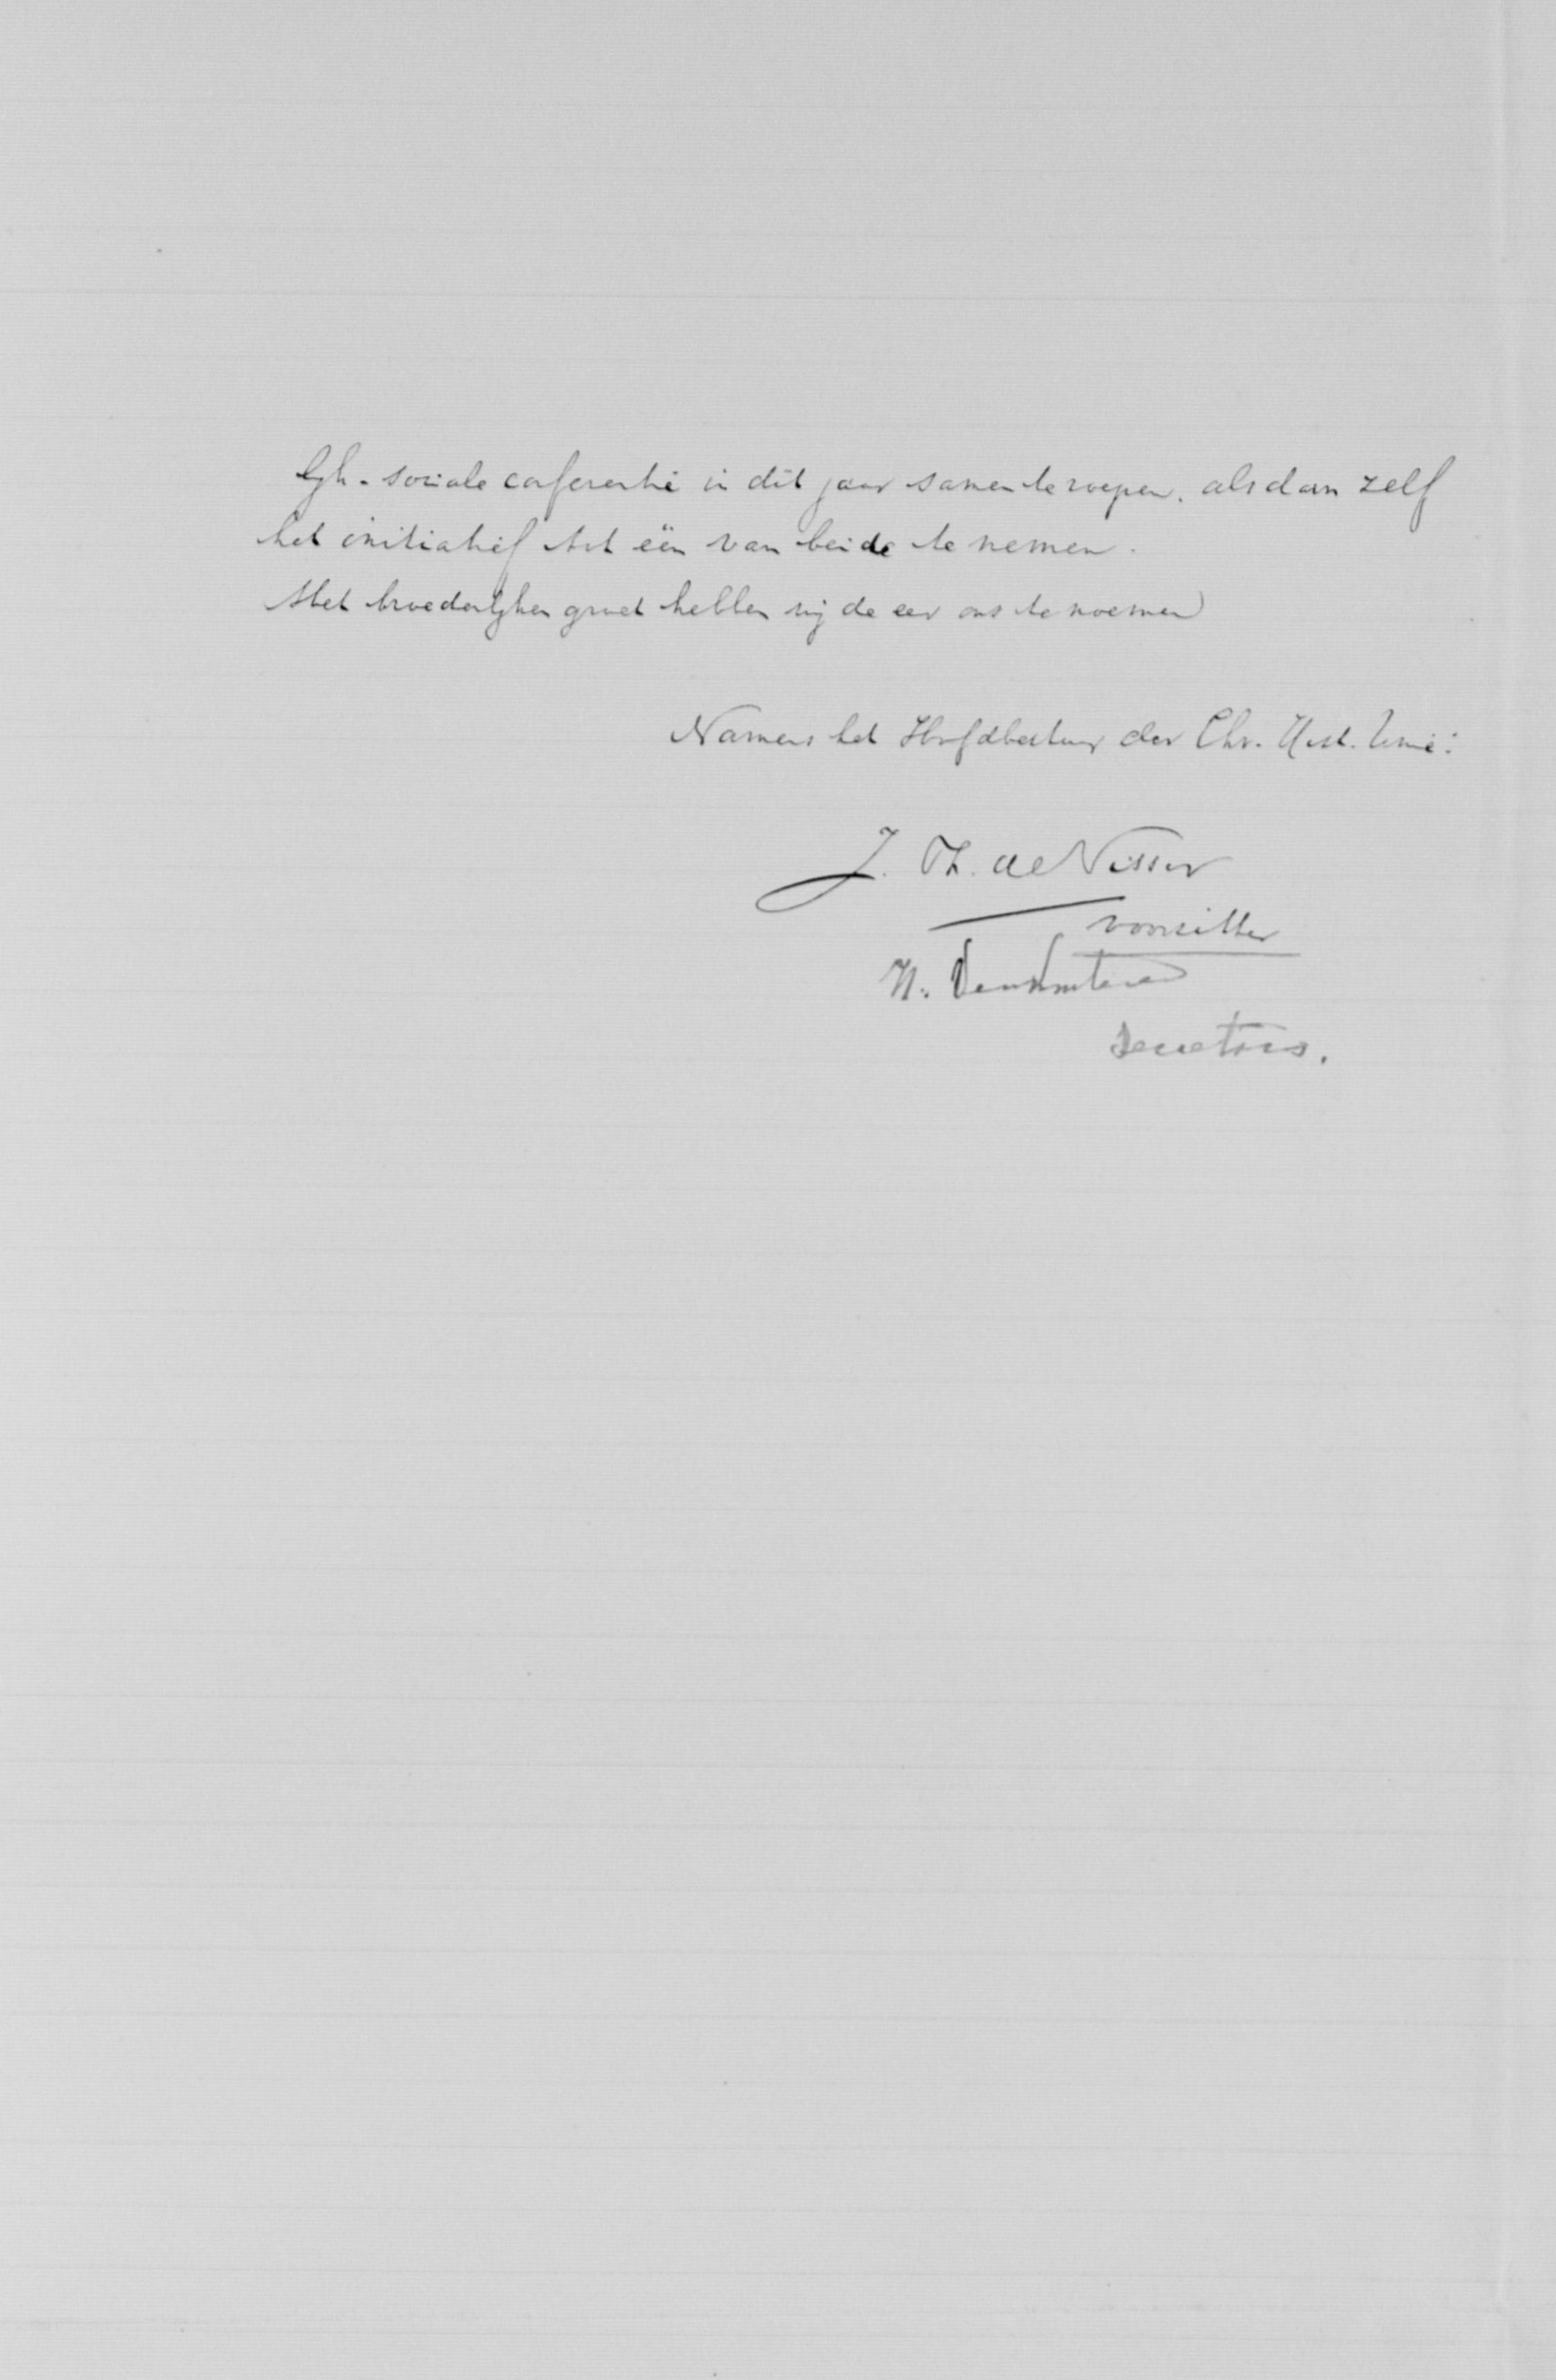 lijk-sociale conferentie in dit jaar samen te roepen, alsdan zelf
het initiatief tot één van beide te nemen.
Met broederlijken groet hebben wij de eer ons te noemen
Namens het Hoofdbestuur der Chr. Hist. Unie:
J. Th. de Visser
voorzitter
H.
secretaris.